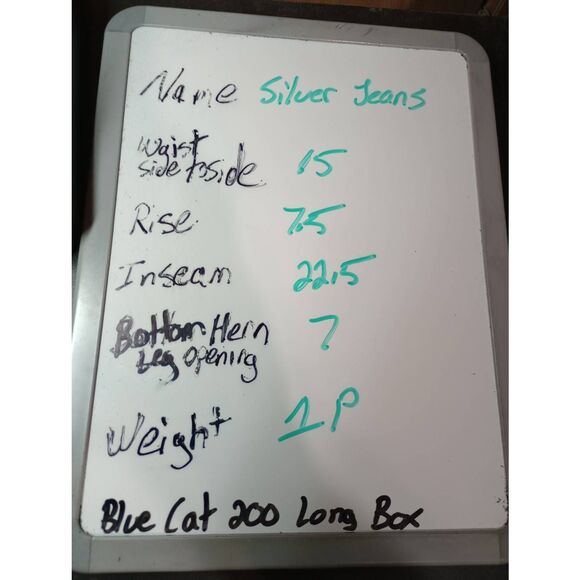 Name Silver Jeans
Waist
side to side 15
Rise 7.5
Inseam 22.5
Bottom Hem 7
Leg Opening
Weight 1P
Blue Cat 200 Long Box